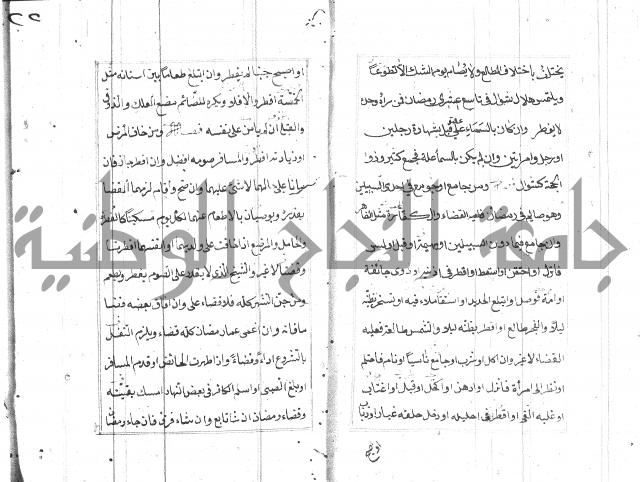 يختلف باختلاف المطالع ولا يصام يوم الشك الا تطوعاً
ويلتمس هلال شوال في تاسع عشري رمضان فن رآه وحده
لا يفطر وان كان بالسماء علة قبل بشهادة رجلين
او رجل وامراتين وان لم يكن بالسماء علة فجمع كثير وذو
الحجة كشوال ومن جامع او جومع في احدى السبيلين
وهو صائم في رمضان فعليه القضاء والكفارة مثل المظاهر
وان جامع فيما دون السبيلين او بهيمة او قبل او لمس
فانزل او احتقن او استعط او اقطر في اذنيه او داوى جائفة
او امة فوصل او ابتلع الحديد او استقاء ملء فيه او تسحر يظنه
ليلاً والفجر طالع او افطر يظنه ليلا والشمس طالعة فعليه
القضاء لا غير وان اكل او شرب او جامع ناسياً او نام فاحتلم
او نظر الى امرأة فانزل او ادهن او اكتحل او قبل او اغتاب
او غلبه القي او اقطر في احليله او دخل حلقه غبار او ذباب
او اصبح
او اصبح جنبا لم يفطر وان ابتلع طعاما بين اسنانه مثل
الحمصة افطر والا فلا ويكره للصائم مضغ العلك والذوق
والقبلة ان لم يأمن على نفسه ومن خاف المرض
او زيادته افطر والمسافر صومه افضل وان افطر جاز فان
ماتا على حالهما لا شيء عليهما وان صح واقام لزمهما القضا
بقدره ويوصيان بالاطعام عنهما لكل يوم مسكينا كالفطرة
والحامل والمرضع اذا خافت على ولديهما او نفسهما افطرتا
وقضتا لا غير والشيخ الذي لا يقدر على الصوم يفطر ويطعم
ومن جن الشهر كله فلا قضاء على وان افاق بعضه قضا
ما فاته وان اغمى عليه رمضان كله قضاء ويلزم النفل
بالشروع اداءً وقضاءً واذا طهرت الحائض او قدم المسافر
او بلغ الصبي او اسلم الكافر في بعض النهار امسك بقيته
وقضاء رمضان ان شا تابع وان شاء فرق فان جاء رمضان
جامعة النجاح الوطنية